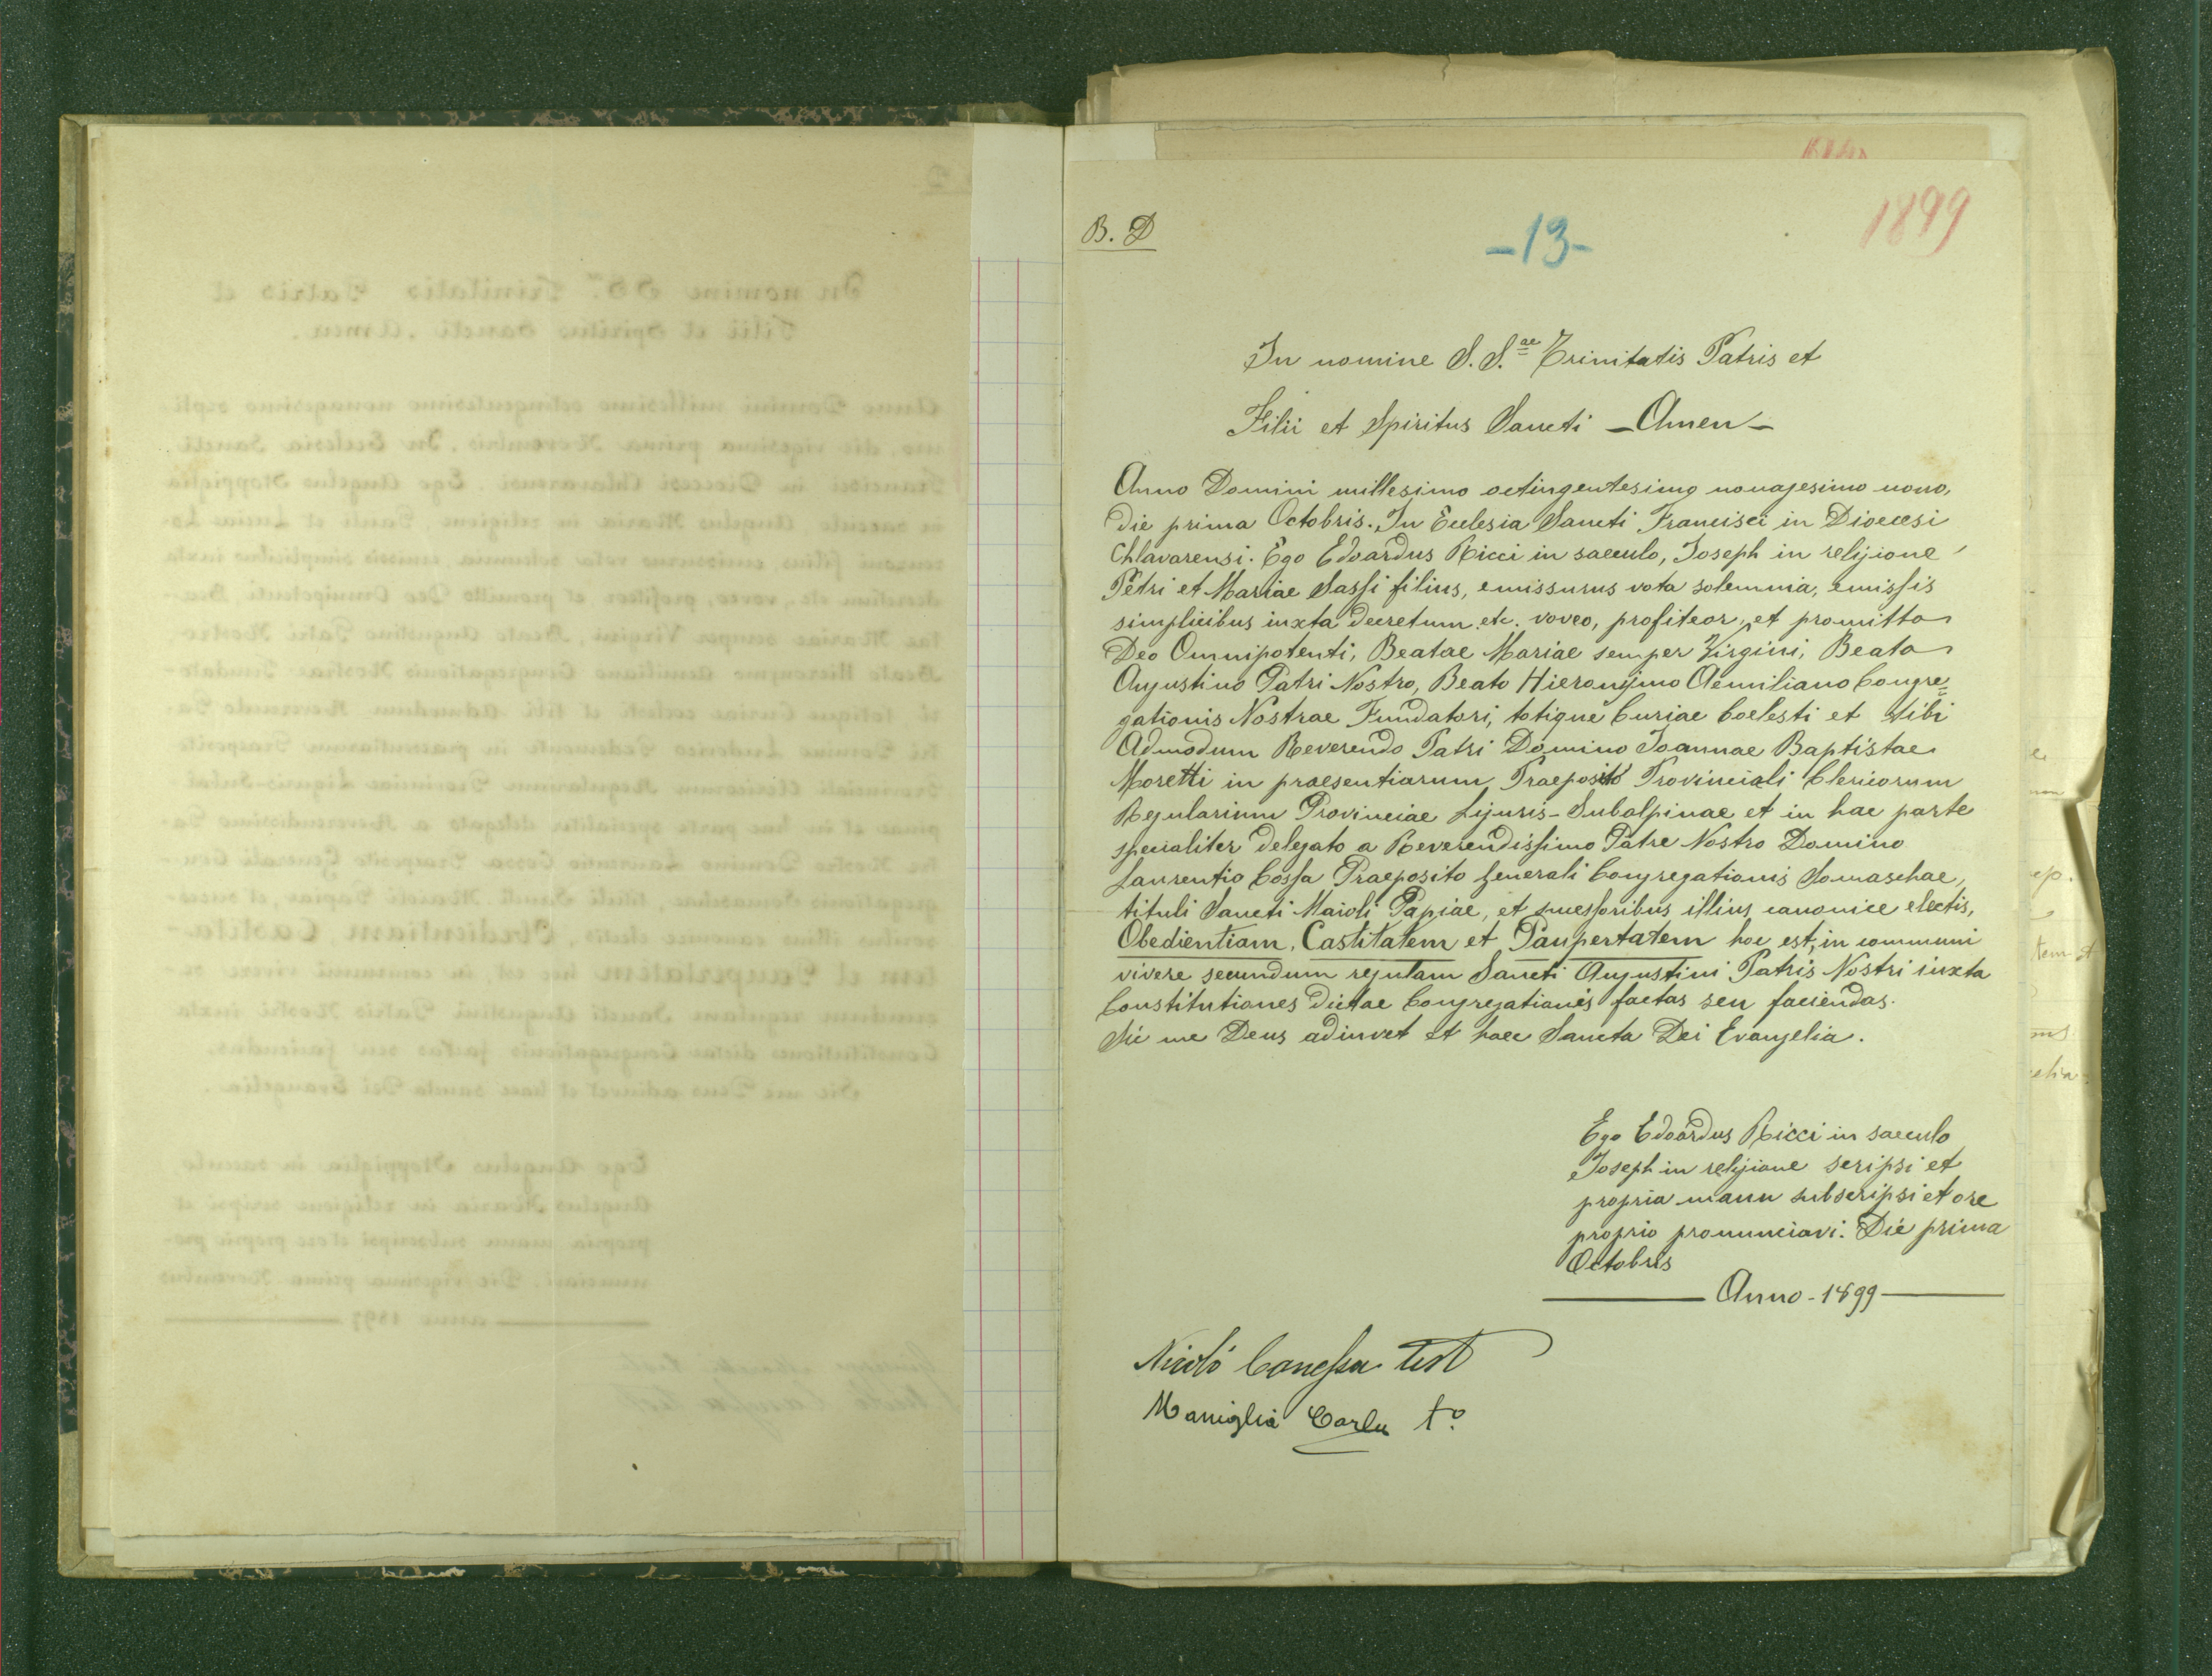 B. D
-13-
1899
In nomine S. S.ae Trinitatis Patris et
Filii et Spiritus Sancti - Amen -
Anno Domini millesimo octingentesimo nonagesimo nono,
die prima Octobris. In Ecclesia Sancti Francisci in Dioecesi
Chlavarensi. Ego Edvardus Ricci in saeculo, Joseph in religione
Petri et Mariae Sassi filius, emissurus vota solemnia, emissis
simplicibus iuxta decretum etc. voveo, profiteor, et promitto
Deo Omnipotenti, Beatae Mariae semper Virgini, Beato
Augustino Patri Nostro, Beato Hieronymo Aemiliano Congre=
gationis Nostrae Fundatori, totique Curiae Coelesti et tibi
Admodum Reverendo Patri Domino Joannae Baptistae
Moretti in praesentiarum Praeposito Provinciali Clericorum
Regularium Provinciae Liguris-Subalpinae et in hac parte
specialiter delegato a Reverendissimo Patre Nostro Domino
Laurentio Cossa Praeposito Generali Congregationis Somaschae,
tituli Sancti Maioli Papiae, et successoribus illius canonice electis,
Obedientiam, Castitatem et Paupertatem hoc est, in communi
vivere secundum regulam Sancti Augustini Patris Nostri iuxta
Constitutiones dictae Congregationis factas seu faciendas.
Sic me Deus adiuvet et haec Sancta Dei Evangelia.
Ego Edoardus Ricci in saeculo
Joseph in religione scripsi et
propria manu subscripsi et ore
proprio pronunciavi. Die prima
Octobris
Anno - 1899
Nicolò Canessa test
Maniglia Carlu t.o